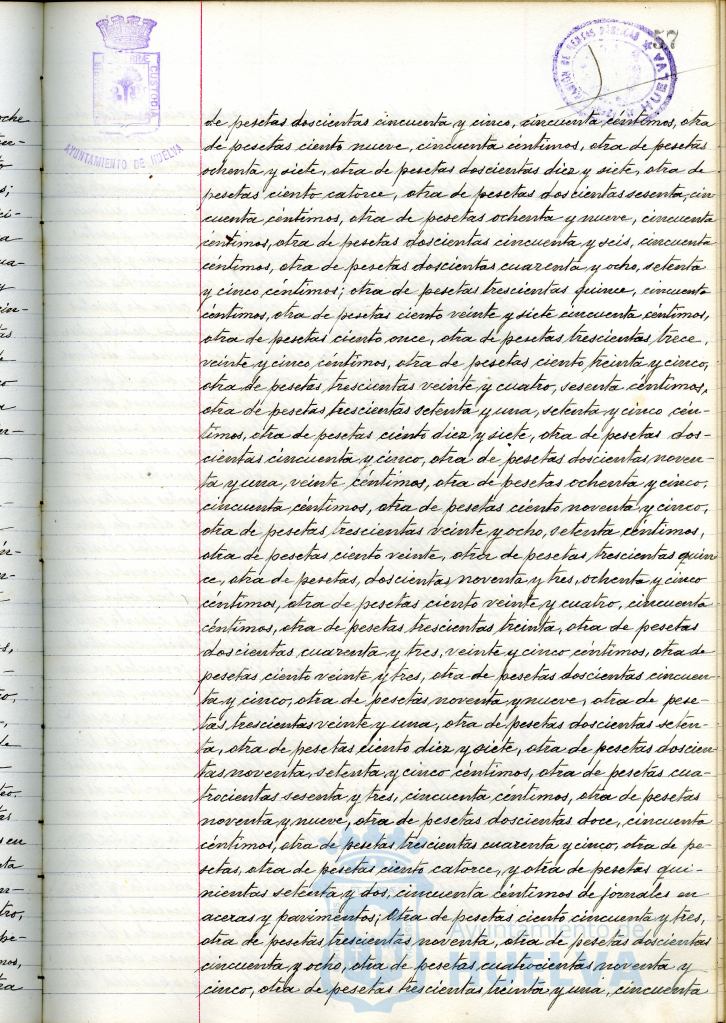 57
AYUNTAMIENTO DE HUELVA
CUSTODIA
HUELVA
de pesetas doscientas cincuenta y cinco, cincuenta céntimos, otra
de pesetas ciento nueve, cincuenta céntimos, otra de pesetas
ochenta y siete, otra de pesetas doscientas diez y siete, otra de
pesetas ciento catorce, otra de pesetas doscientas sesenta, cin
cuenta centimos, otra de pesetas ochenta y nueve, cincuenta
centimos, otra de pesetas doscientas cincuenta y seis, cincuenta
céntimos, otra de pesetas doscientas cuarenta y ocho, setenta
y cinco céntimos; otra de pesetas trescientas quince, cincuenta
céntimos, otra de pesetas ciento veinte y siete cincuenta céntimos,
otra de pesetas ciento once, otra de pesetas trescientas trece,
veinte y cinco céntimos, otra de pesetas ciento treinta y cinco,
otra de pesetas trescientas veinte y cuatro, sesenta céntimos,
otra de pesetas trescientas setenta y una, setenta y cinco cén-
timos, otra de pesetas ciento diez y siete, otra de pesetas dos-
cientas cincuenta y cinco, otra de pesetas doscientas noven-
ta y una, veinte céntimos, otra de pesetas ochenta y cinco,
cincuenta céntimos, otra de pesetas ciento noventa y cinco,
otra de pesetas trescientas veinte y ocho, setenta céntimos,
otra de pesetas ciento veinte, otra de pesetas trescientas quin
ce, otra de pesetas, doscientas noventa y tres, ochenta y cinco
céntimos, otra de pesetas ciento veinte y cuatro, cincuenta
céntimos, otra de pesetas trescientas treinta, otra de pesetas
doscientas cuarenta y tres, veinte y cinco centimos, otra de
pesetas ciento veinte y tres, otra de pesetas doscientas cincuen-
ta y cinco, otra de pesetas noventa y nueve, otra de pese-
tas trescientas veinte y una, otra de pesetas doscientas seten-
ta, otra de pesetas ciento diez y siete, otra de pesetas doscien-
tas noventa, setenta y cinco céntimos, otra de pesetas cua-
trocientas sesenta y tres, cincuenta céntimos, otra de pesetas
noventa y nueve, otra de pesetas doscientas doce, cincuenta
céntimos, otra de pesetas trescientas cuarenta y cinco, otra de pe-
setas, otra de pesetas ciento catorce, y otra de pesetas qui-
nientas setenta y dos, cincuenta céntimos de jornales en
aceras y pavimentos; Otra de pesetas ciento cincuenta y tres,
otra de pesetas trescientas noventa, otra de pesetas doscientas
cincuenta y ocho, otra de pesetas cuatrocientas noventa y
cinco, otra de pesetas trescientas treinta y una, cincuenta
Ayuntamiento de
HUELVA